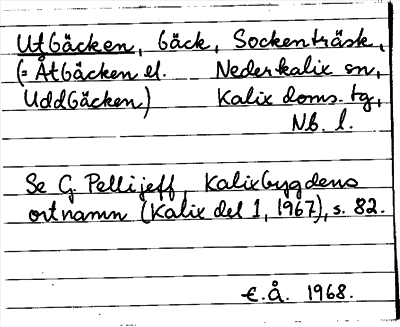 Utbäcken, bäck, Sockenträsk,
(= Åtbäcken el. Nederkalix sn,
Uddbäcken) Kalix doms. tg,
Nb. l.
Se G. Pellijeff, Kalixbygdens
ortnamn (Kalix del 1, 1967), s. 82.
E.Å. 1968.